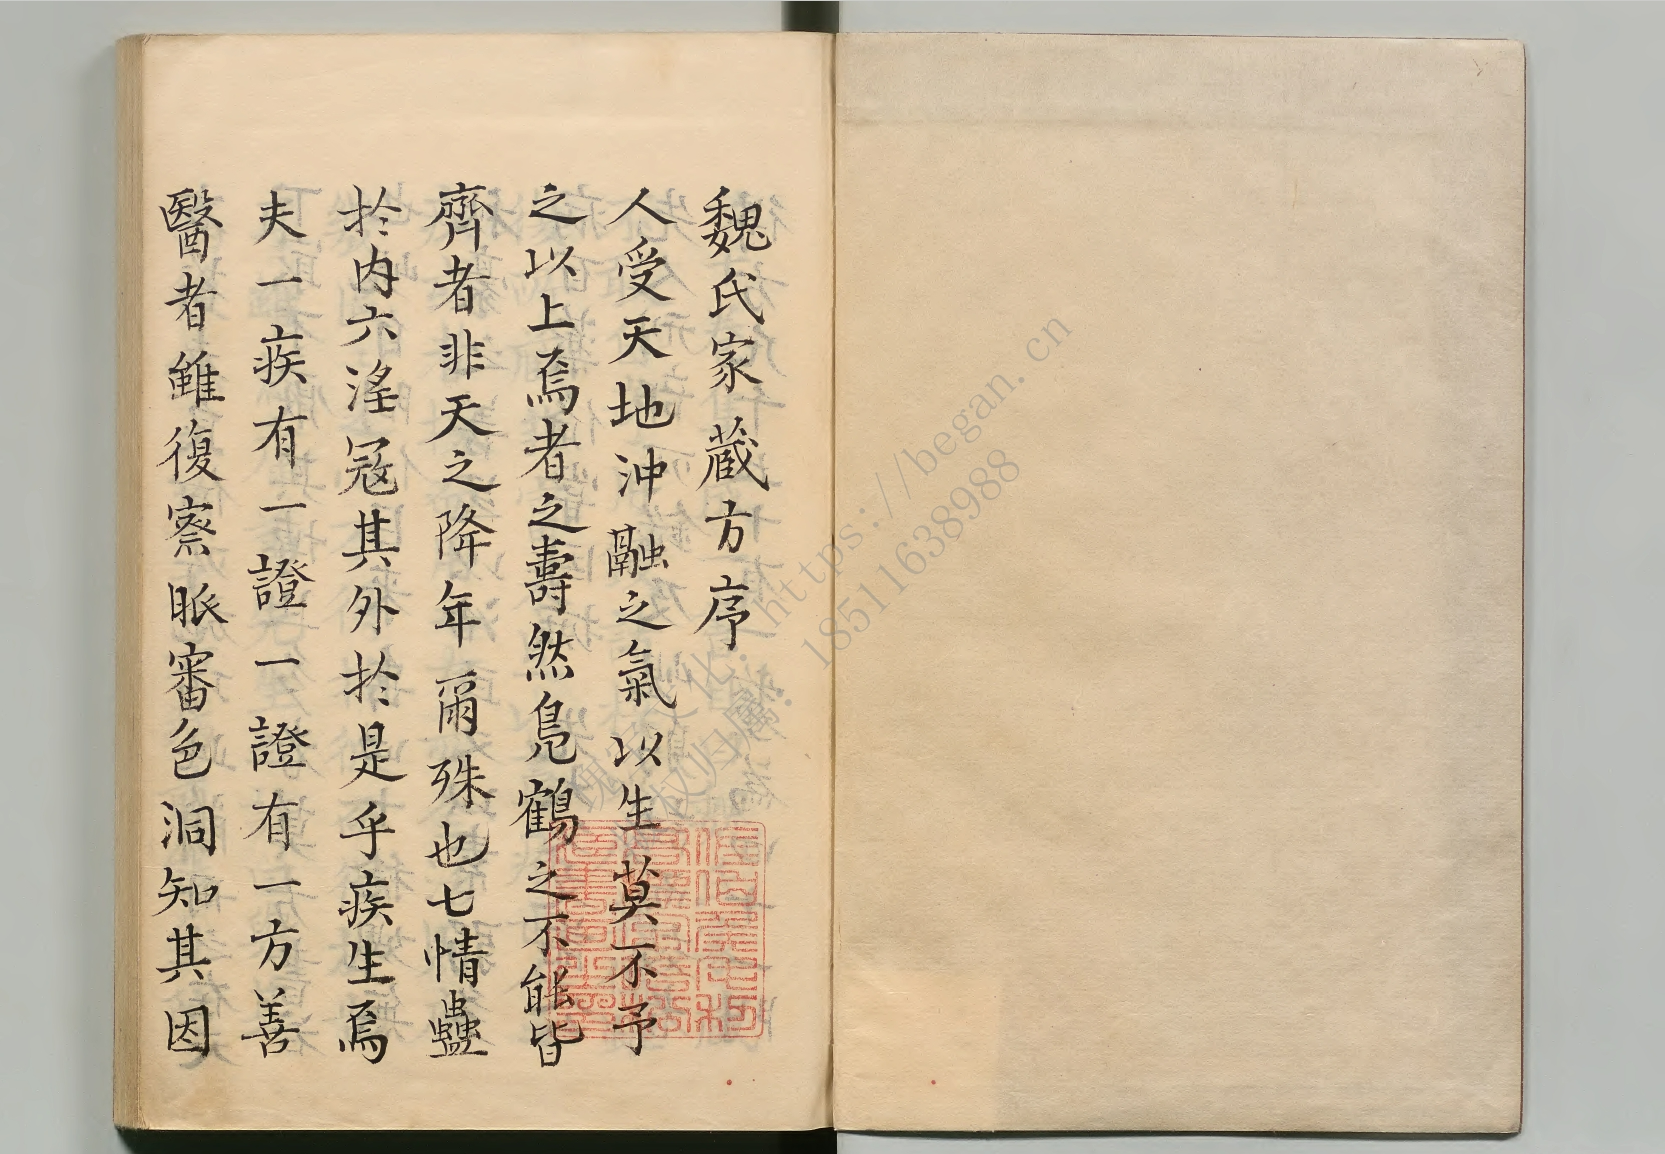 魏氏家蔵方序
人受天地沖融之氣以生莫不予
之以上焉者之壽然鳧鶴之不能皆
齊者非天之降年爾殊也七情蠱
於内六淫冦其外於是乎疾生焉
夫一疾有一證一證有一方善
醫者雖復察脈審色洞知其因
https://began.cn
18511638988